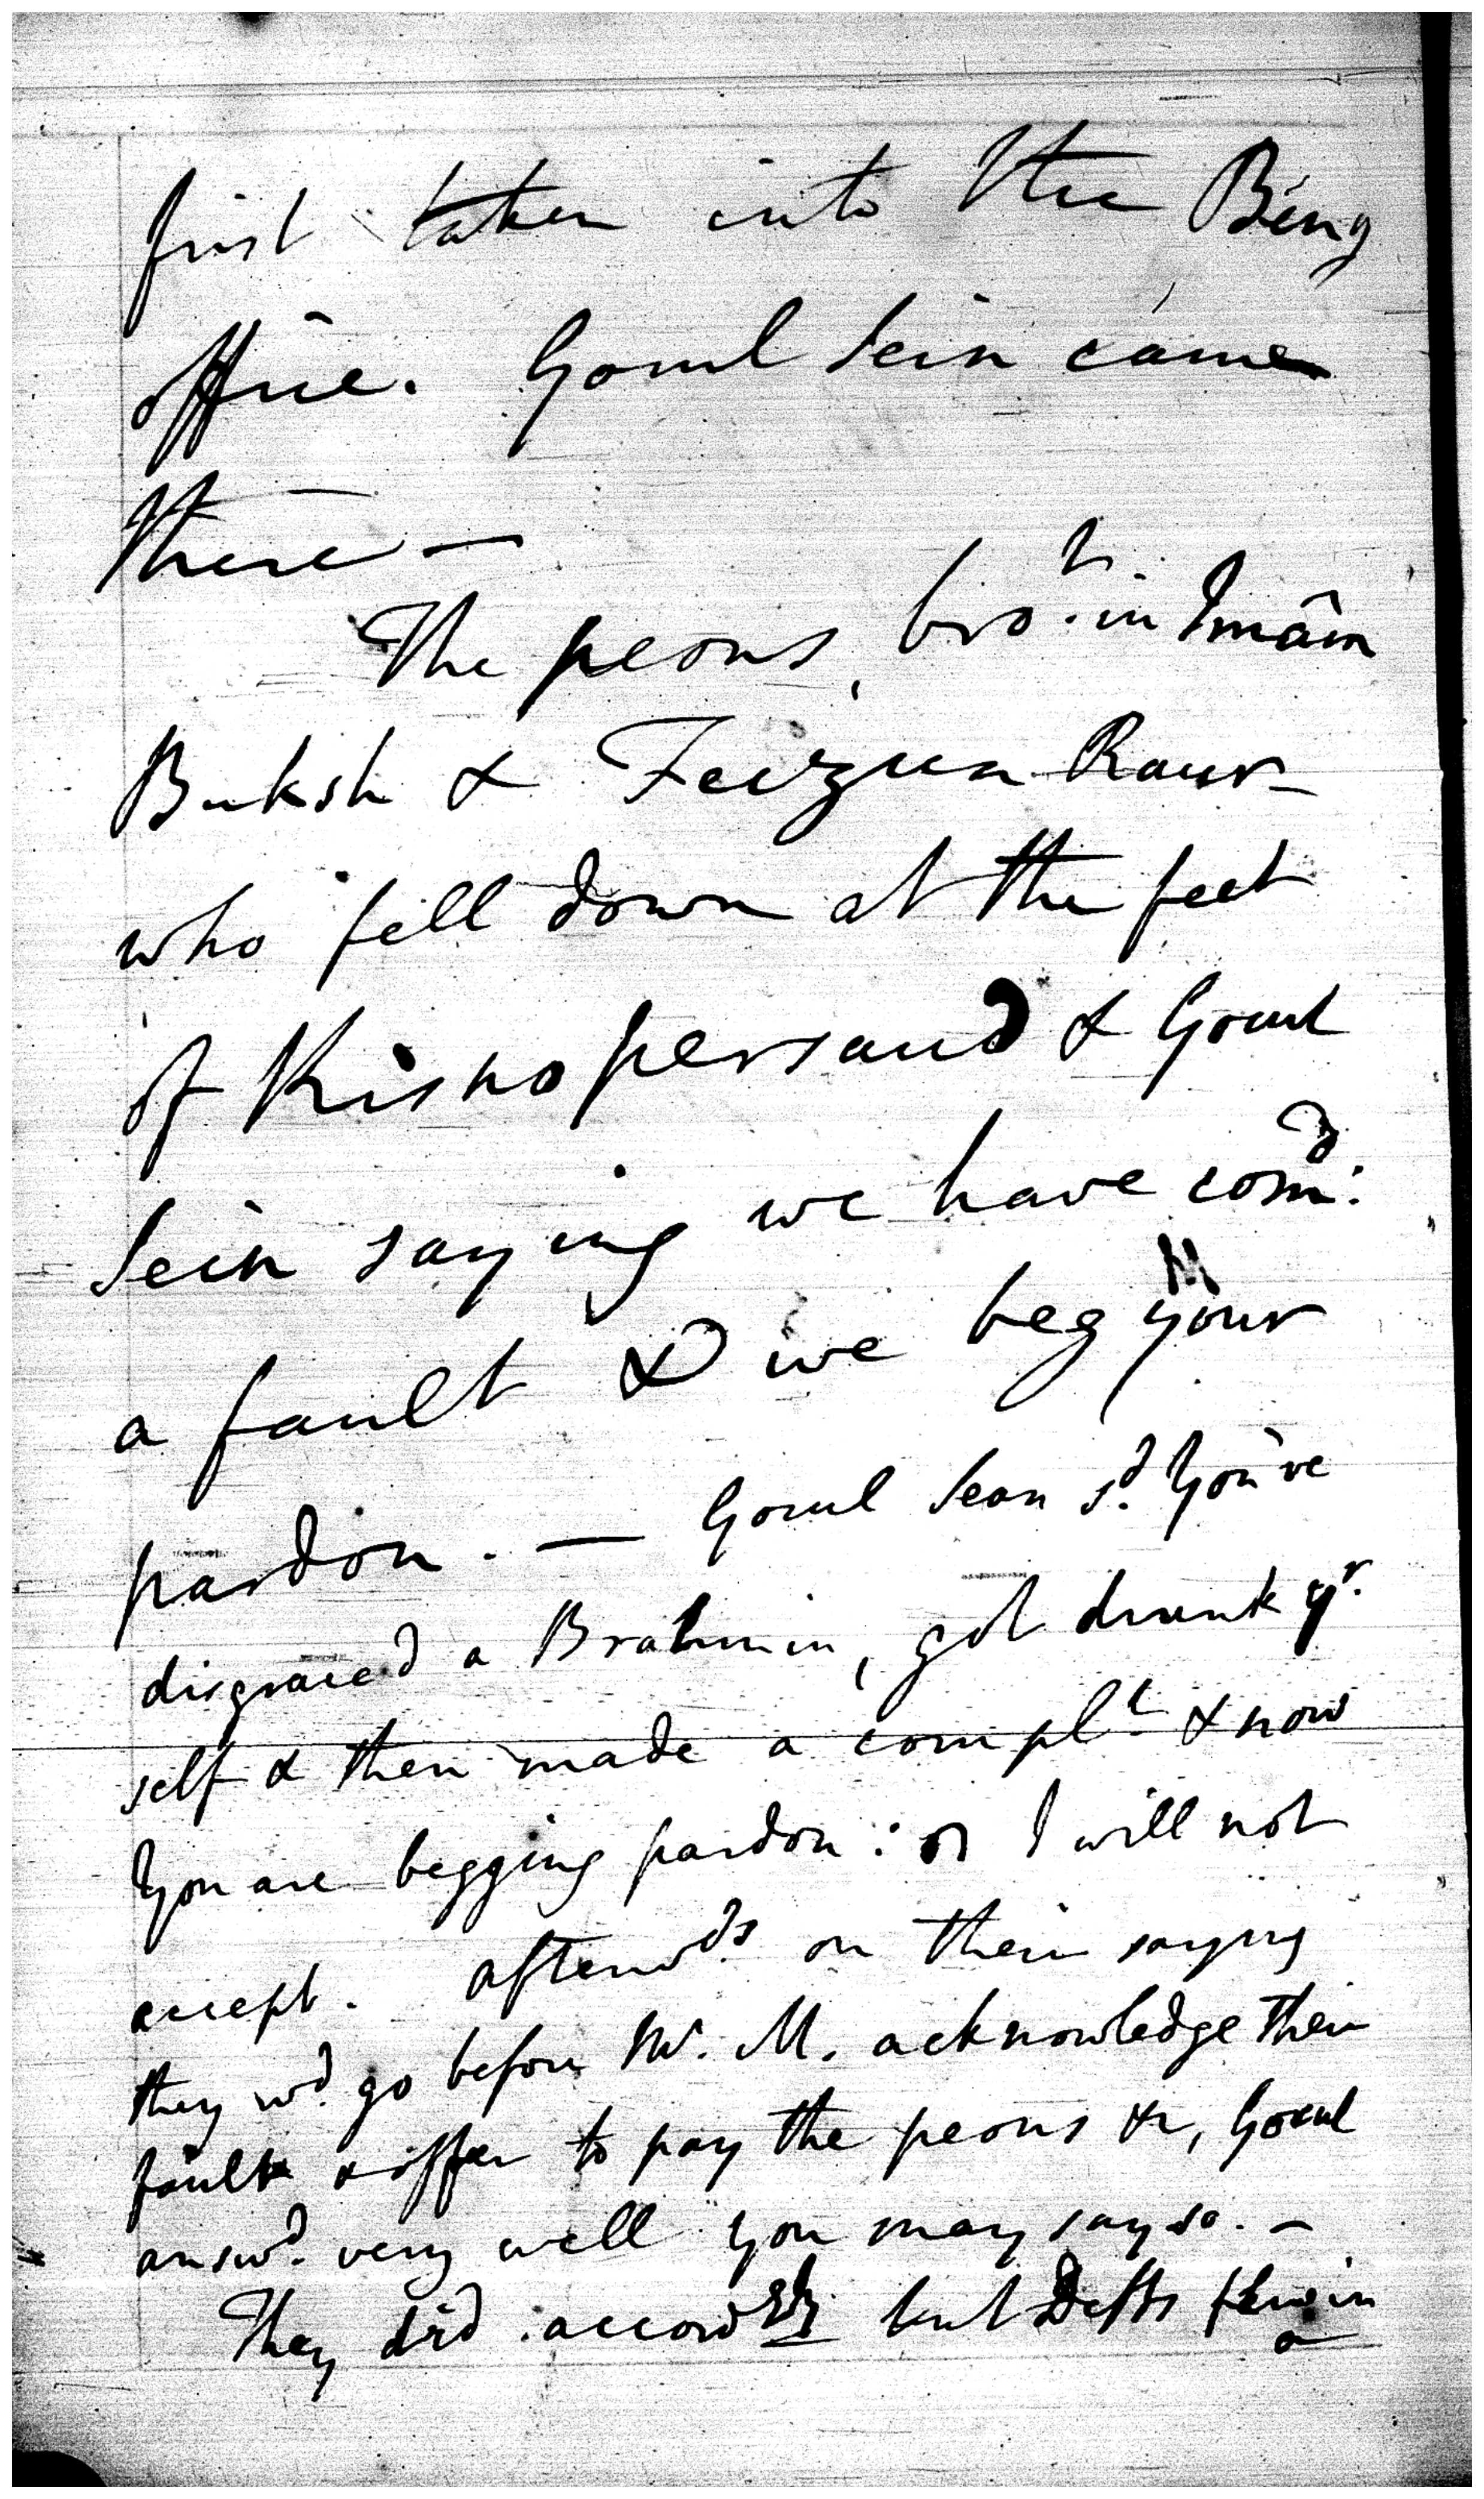 first taken into the Beng
office. Gocul Sein came
there —
The peons, bro.t in Imâm
Buksh & Feizun Raur
who fell down at the feet
of Kisnopersaud & Gocul
Sein saying we have com.d
a fault & we beg your
pardon. — Gocul Sean s.d You've
disgraced a Brahmin, got drunk y.r
self & then made a compl.t & now
you are begging pardon: I will not
accept. afterw.ds on their saying
they w.d go before Mr. M. acknowledge their
fault & offer to pay the peons &c, Gocul
answ.d very well you may say so. —
They did accord.ly but Defts